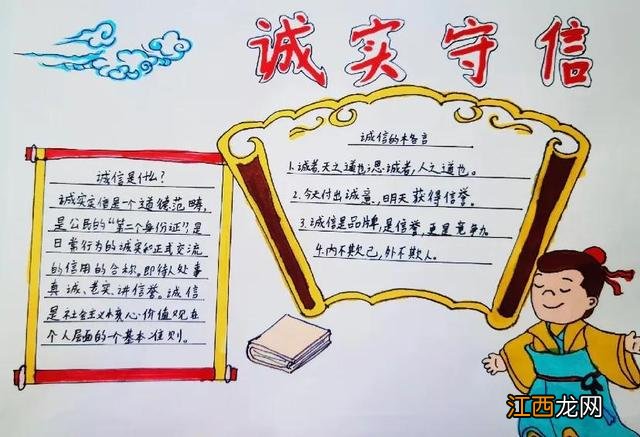 诚实守信
诚信是什么?
诚实守信是一个道德范畴,
是公民的“第二个身份证”,是
日常行为的诚实和正式交流
的信用的合称。即待人处事
真诚、老实、讲信誉。诚信
是社会主义核心价值观在
个人层面的一个基本准则。
诚信的格言
1.诚者,天之道也;思诚者,人之道也。
2.今天付出诚意,明天获得信誉。
3.诚信是品牌,是信誉,更是竞争力。
4.内不欺己,外不欺人。
江西龙网